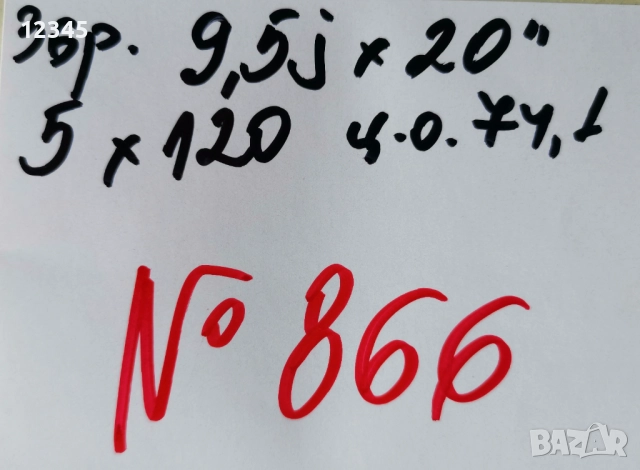 12345
3бр. 9,5j x 20"
5 x 120 ц.о. 74,1
№ 866
BAZAR